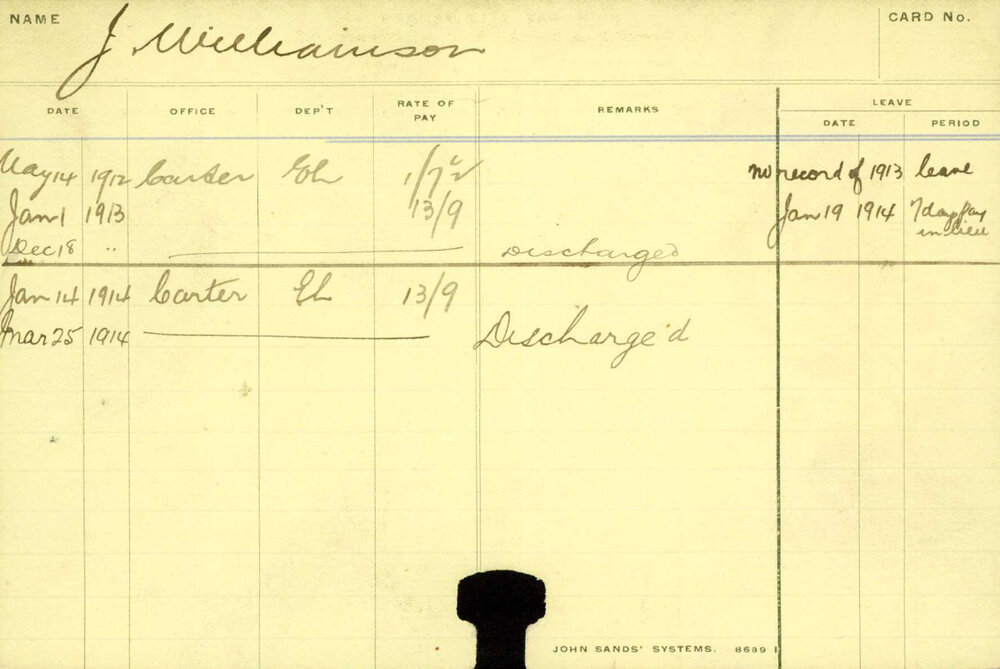 NAME J. Williamson CARD No.
DATE OFFICE DEP'T RATE OF PAY REMARKS LEAVE
DATE PERIOD
May 14 1912 Carter 1/7½ no record of 1913 leave
Jan 1 1913 13/9 Jan 19 1914 7 days pay
in lieu
Dec 18 " Discharged
Jan 14 1914 Carter 13/9
Mar 25 1914 Discharge'd
JOHN SANDS' SYSTEMS. 8689